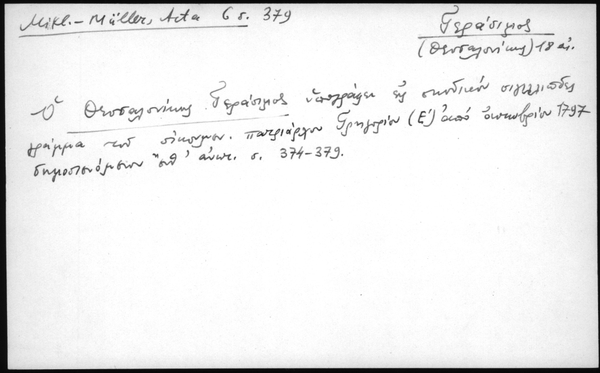 Mikl.-Müller, Acta 6 σ. 379
Γεράσιμος
(Θεσσαλονίκης) 18 αἰ.
Ὁ Θεσσαλονίκης Γεράσιμος ὑπογράφει εἰς συνοδικόν σιγιλλιῶδες
γράμμα τοῦ οἰκουμεν. πατριάρχου Γρηγορίου (Ε') ἀπό ὀκτωβρίου 1797
δημοσιευόμενον αὐτ. σ. 374-379.